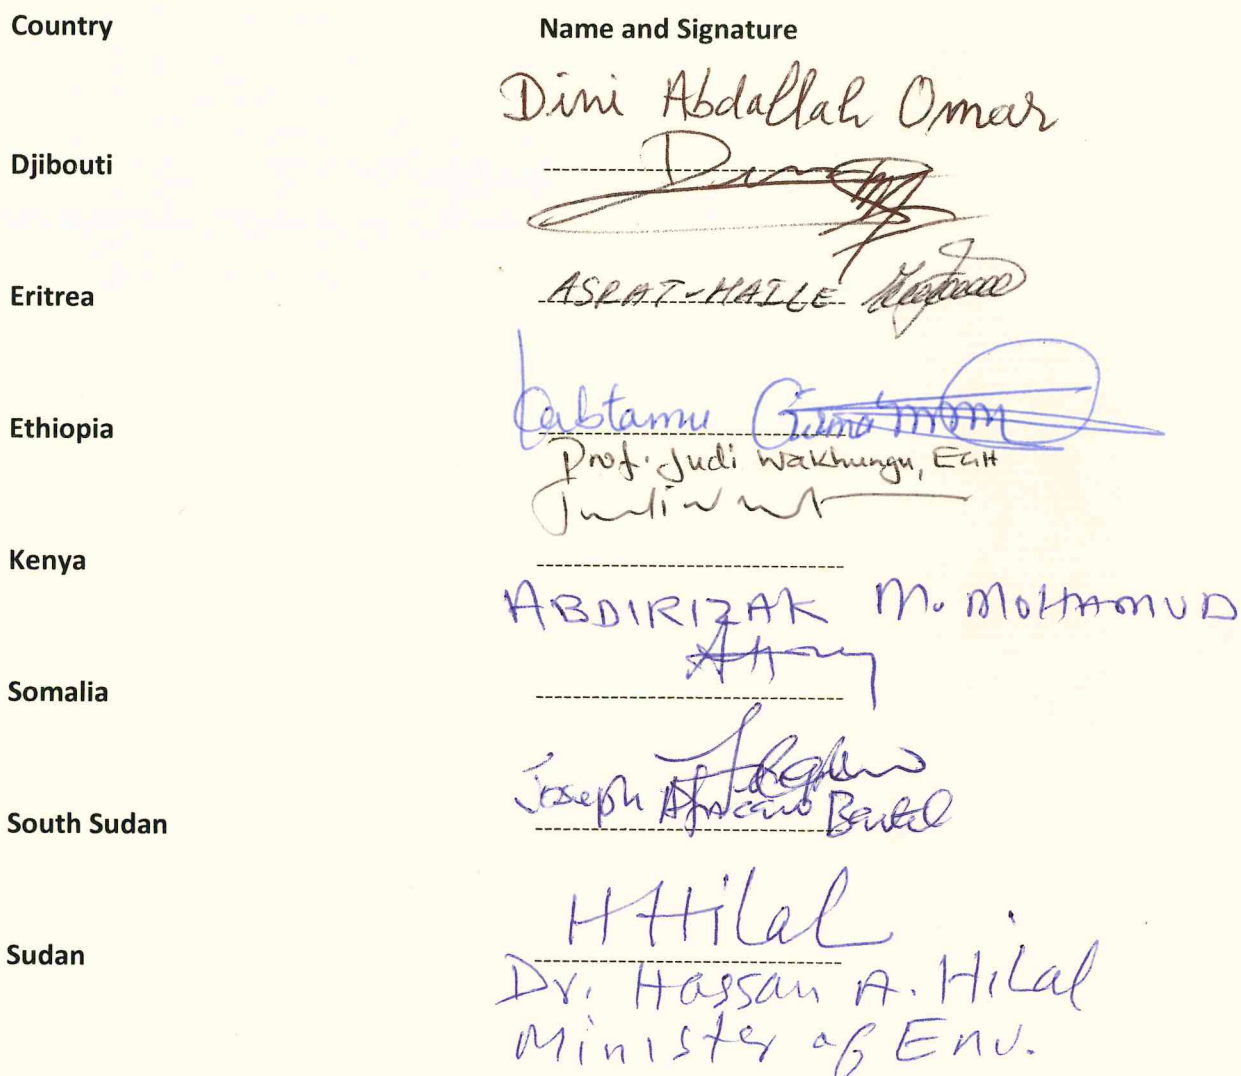 Country Name and Signature
Dini Abdallah Omar
Djibouti
Eritrea ASRAT-HAILE
Ethiopia Kabtamu Girma
Prof. Judi Wakhungu, EGH
Kenya
ABDIRIZAK M. MOHAMUD
Somalia
South Sudan Joseph Africano Bartel
Sudan HHilal
Dr. Hassan A. Hilal
Minister of Env.